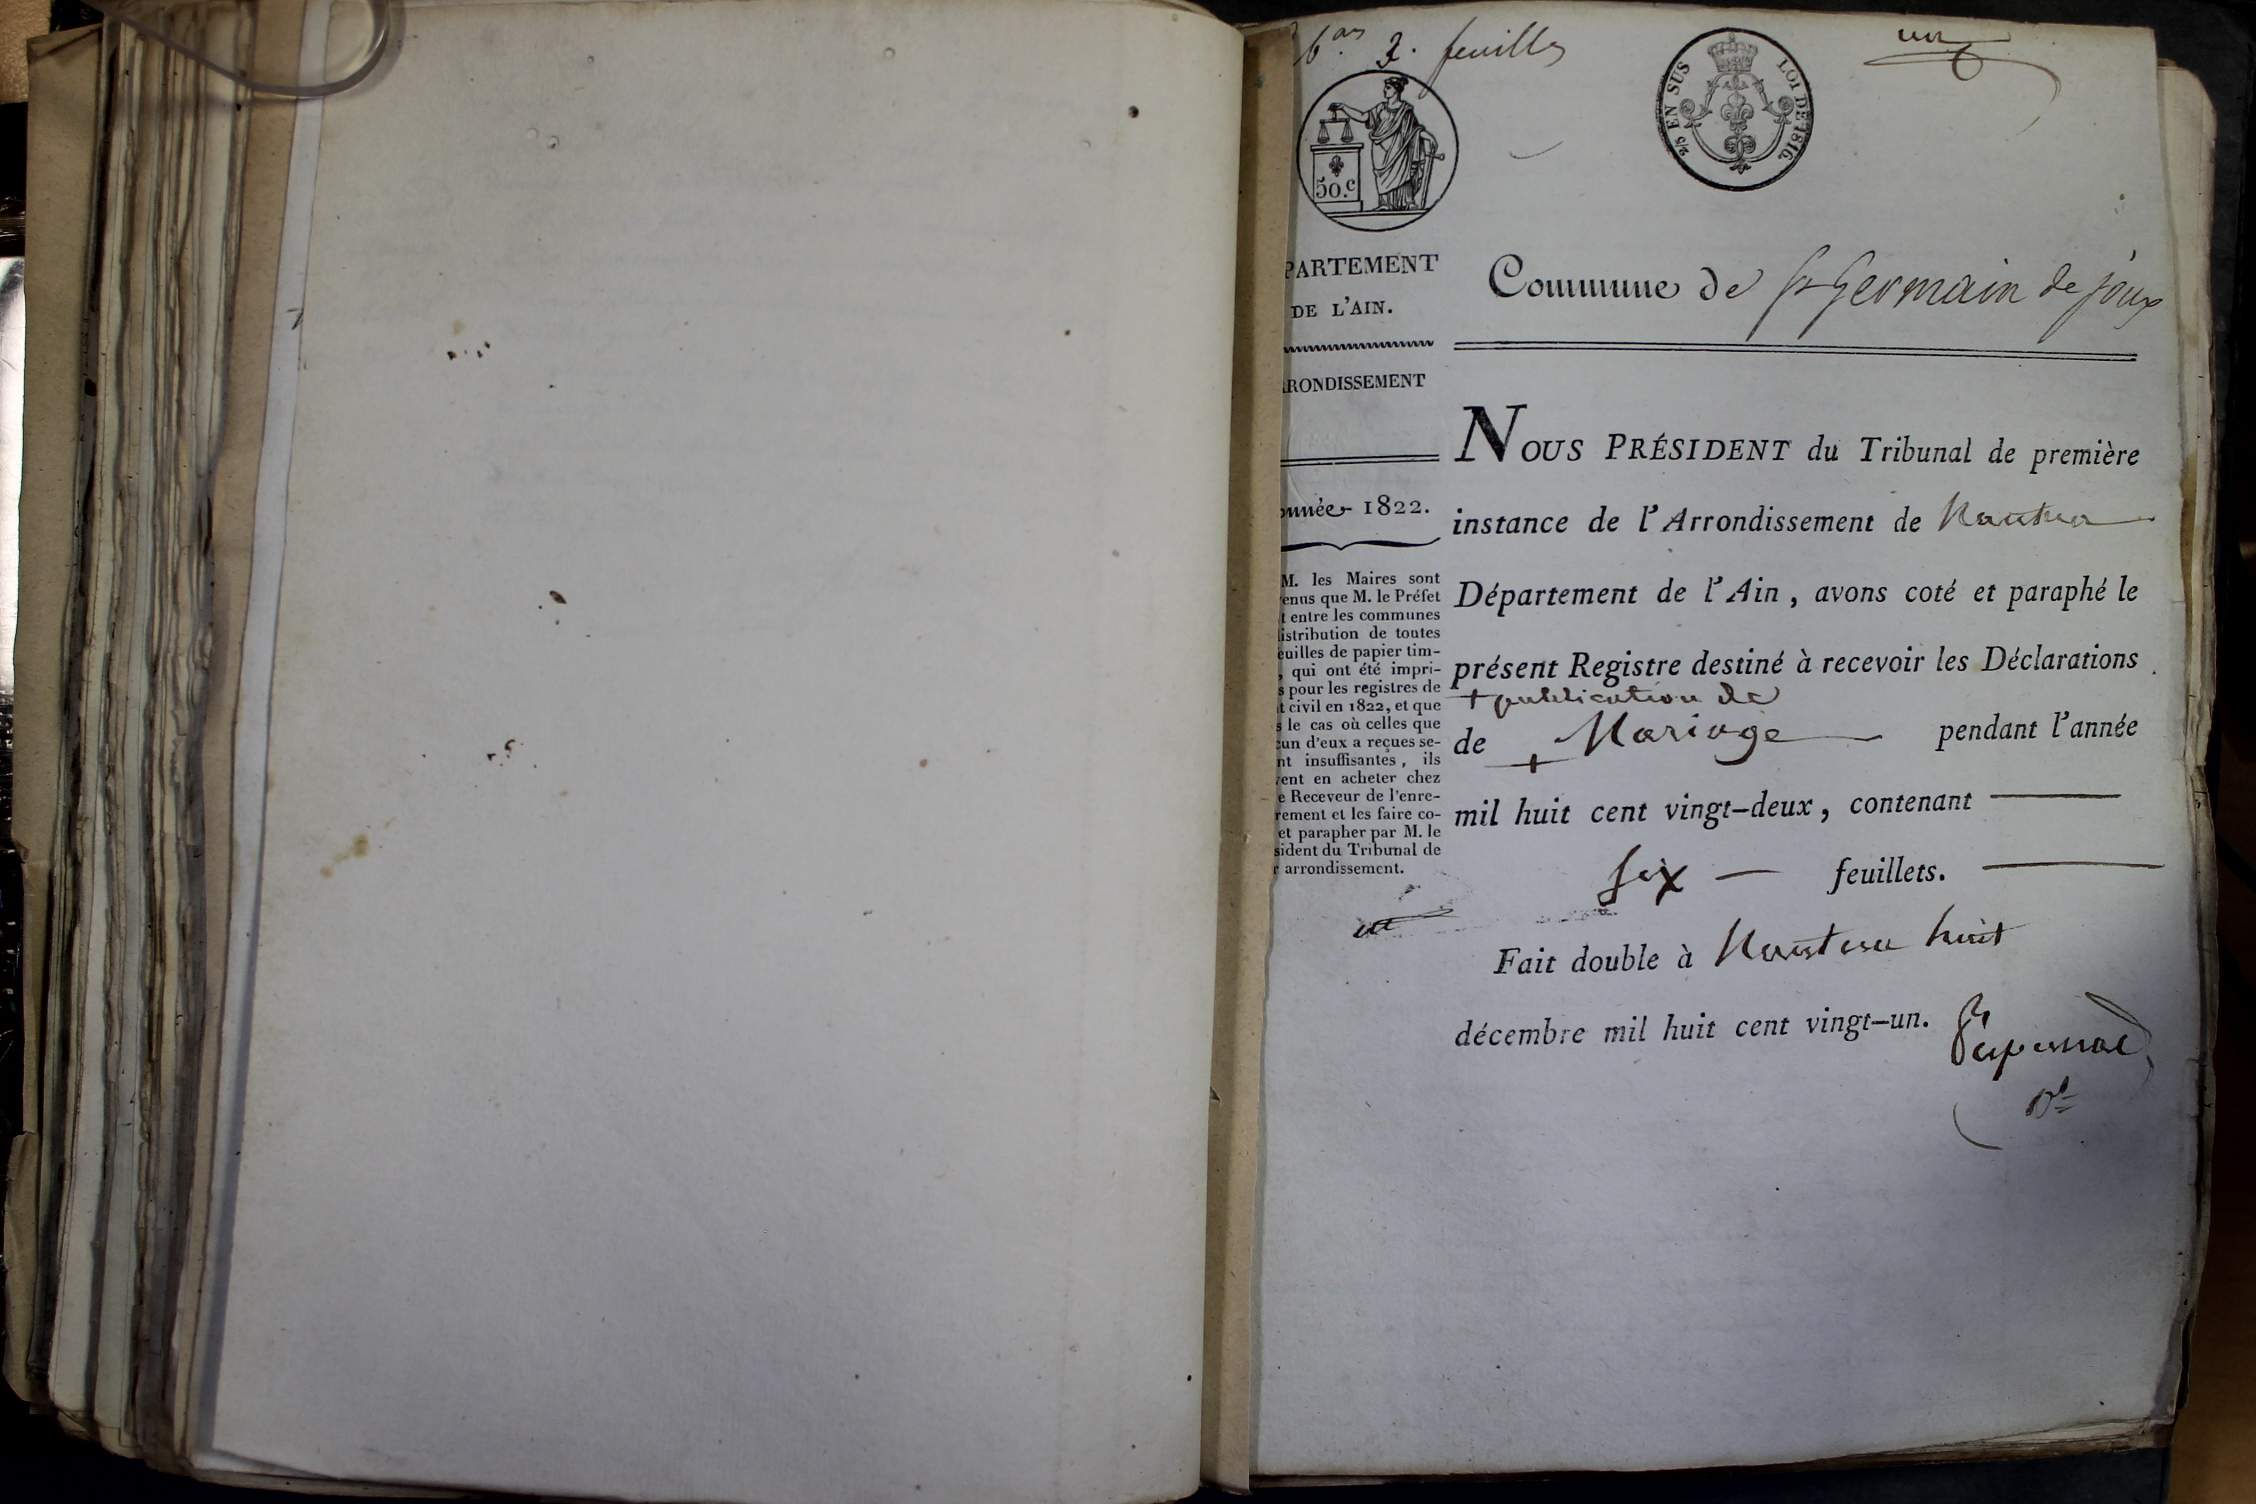 2. feuilles
un
50.c
2/5 EN SUS
LOI DE 1816.
PARTEMENT
DE L'AIN.
Commune de St Germain de joux
RRONDISSEMENT
NOUS PRÉSIDENT du Tribunal de première
nnée 1822.
instance de l'Arrondissement de Nantua
Département de l'Ain, avons coté et paraphé le
présent Registre destiné à recevoir les Déclarations
+ publication de
de + Mariage pendant l'année
mil huit cent vingt-deux, contenant
six feuillets.
Fait double à Nantua huit
décembre mil huit cent vingt-un.
M. les Maires sont
enus que M. le Préfet
t entre les communes
istribution de toutes
euilles de papier tim-
, qui ont été impri-
s pour les registres de
t civil en 1822, et que
s le cas où celles que
cun d'eux a reçues se-
nt insuffisantes, ils
vent en acheter chez
e Receveur de l'enre-
rement et les faire co-
et parapher par M. le
sident du Tribunal de
r arrondissement.